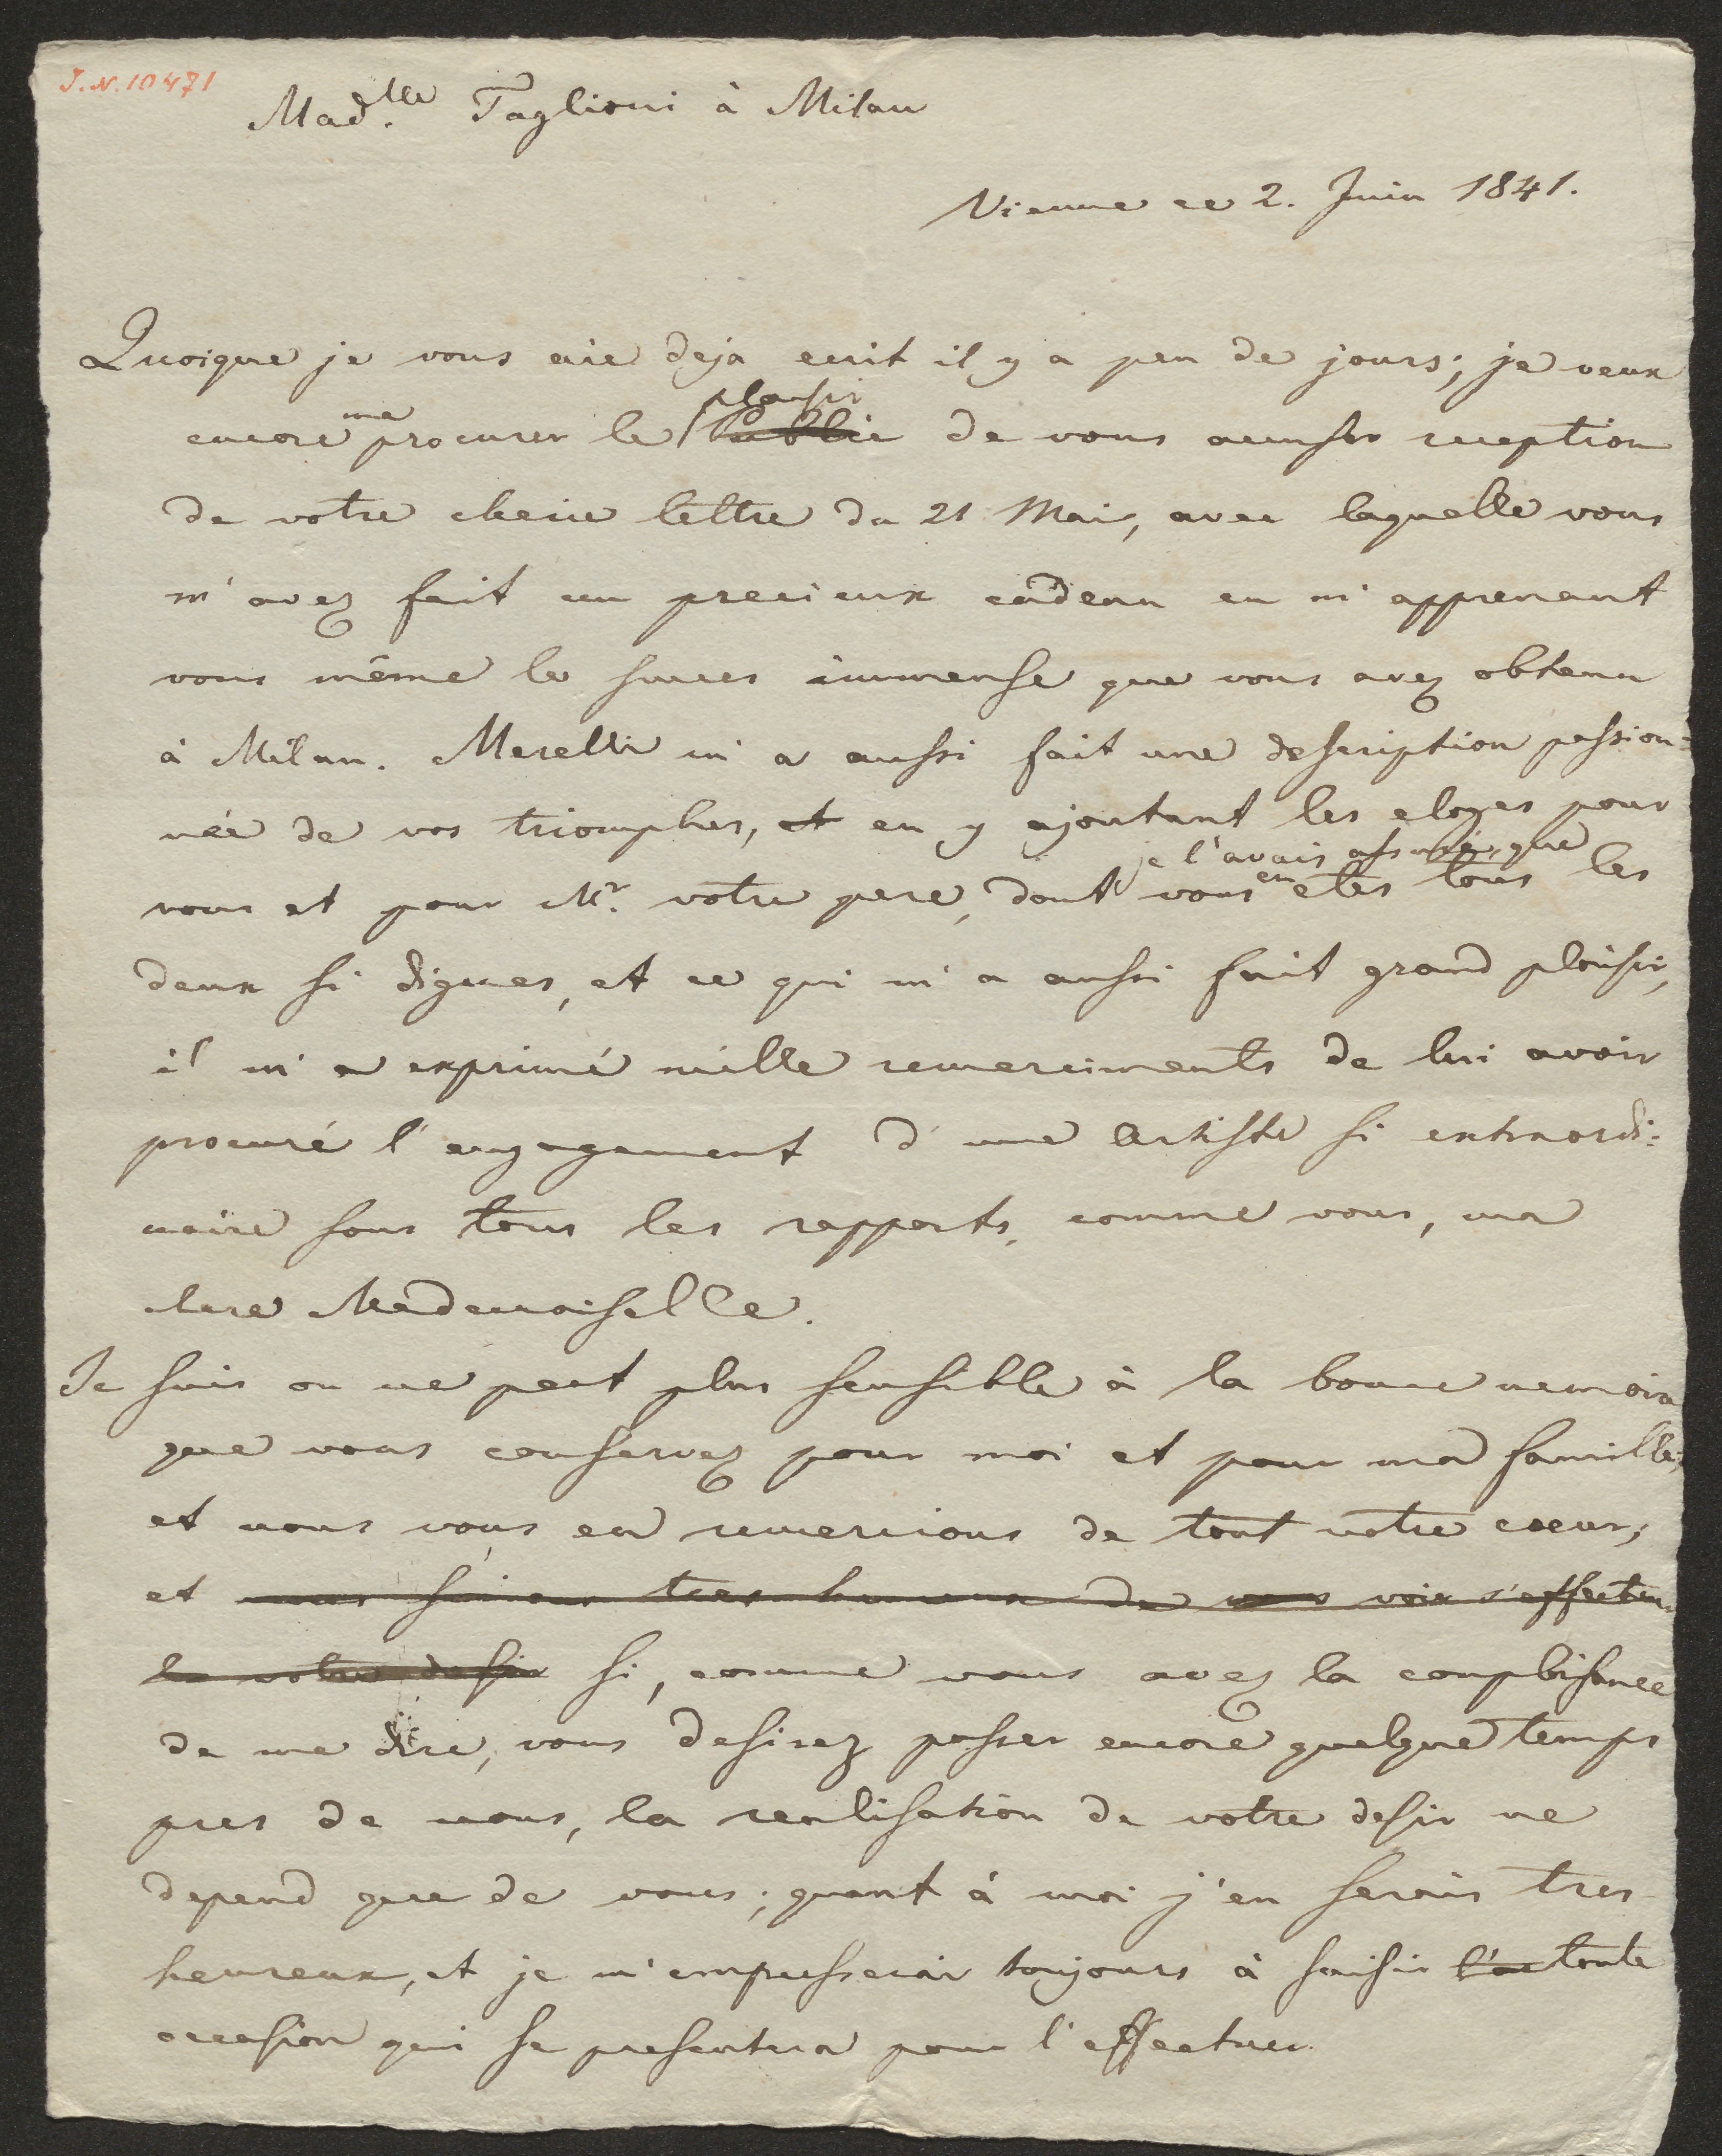 J.N. 10471
Mad.lle Taglioni à Milan
Vienne ce 2. Juin 1841.
Quoique je vous aie deja ecrit il y a peu de jours, je veux
plaisir
encore me procurer le de vous accuser reception
de votre cherie lettre du 21 Mai, avec laquelle vous
m'avez fait un precieux cadeau en m'apprenant
vous même le succes immense que vous avez obtenu
à Milan. Merelli m'a aussi fait une description passion=
née de vos triomphes, et en y ajoutant les eloges pour
je l'avais assuré, que
vous et pour Mr. votre pere, dont vous en etes tous les
deux si dignes, et ce qui m'a aussi fait grand plaisir,
il m'a exprimé mille remerciments de lui avoir
procuré l'engagement d'une Artiste si extraordi=
naire sous tous les rapports, comme vous, ma
chere Mademoiselle.
Je suis on ne peut plus sensible à la bonne memoire
que vous conservez pour moi et pour ma famille,
et nous vous en remercions de tout notre coeur;
et nous serions tres heureux de vous voir s'effectuer
le votre desir si, comme vous avez la complaisance
de me dire, vous desirez passer encore quelque temps
pres de nous, la realisation de votre desir ne
depend que de vous; quant à moi j'en serais tres
heureux, et je m'empresserai toujours à saisir l'oc toute
occasion qui se presentera pour l'effectuer.